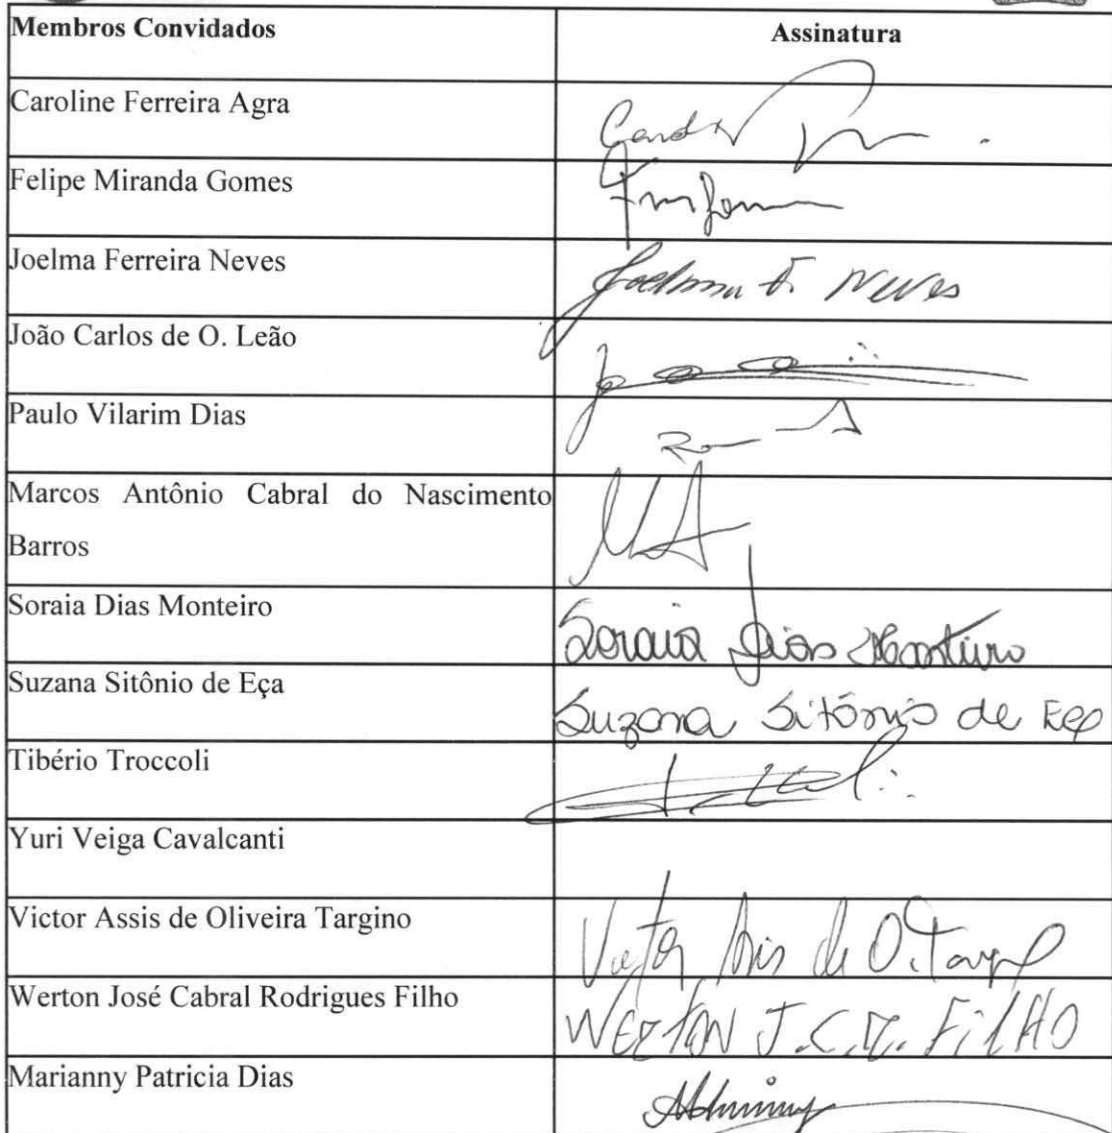 Membros Convidados Assinatura
Caroline Ferreira Agra
Felipe Miranda Gomes
Joelma Ferreira Neves Joelma F. Neves
João Carlos de O. Leão
Paulo Vilarim Dias
Marcos Antônio Cabral do Nascimento
Barros
Soraia Dias Monteiro Soraia Dias Monteiro
Suzana Sitônio de Eça Suzana Sitônio de Eça
Tibério Troccoli
Yuri Veiga Cavalcanti
Victor Assis de Oliveira Targino Victor Assis de O. Targino
Werton José Cabral Rodrigues Filho WERTON J.C.R. FiLHO
Marianny Patricia Dias